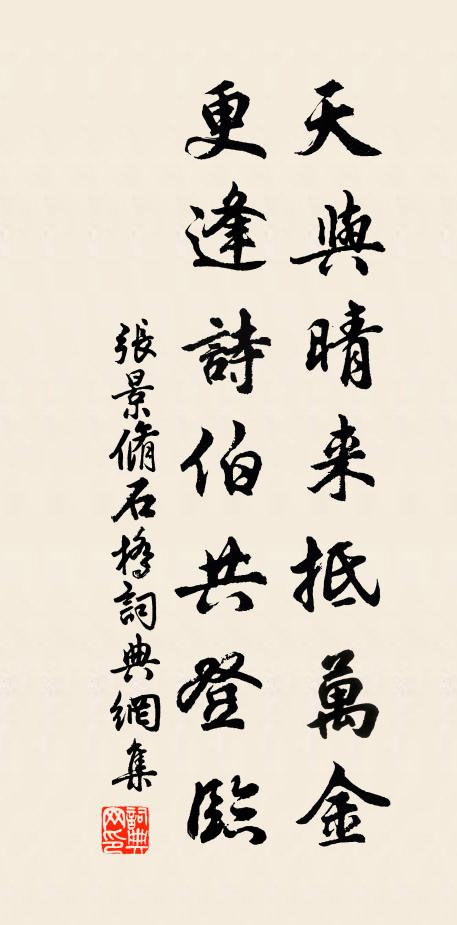 天與晴来抵萬金
更逢詩伯共登臨
張景脩石橋詞典網集
詞典
网印